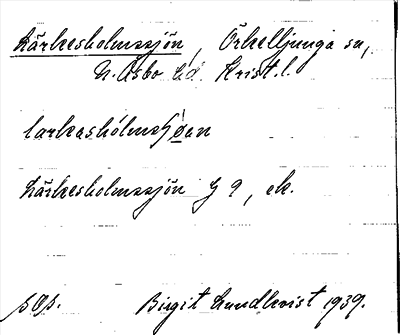 Lärkesholmssjön, Örkelljunga sn,
N. Åsbo hd. Krist. l.
larkashólmsʃǿan
Lärkesholmssjön G 9, ek.
sOs. Birgit Lundkvist 1939.